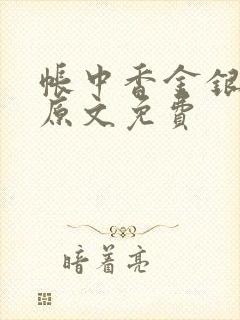 帐中香金银
原文免费
暗着亮